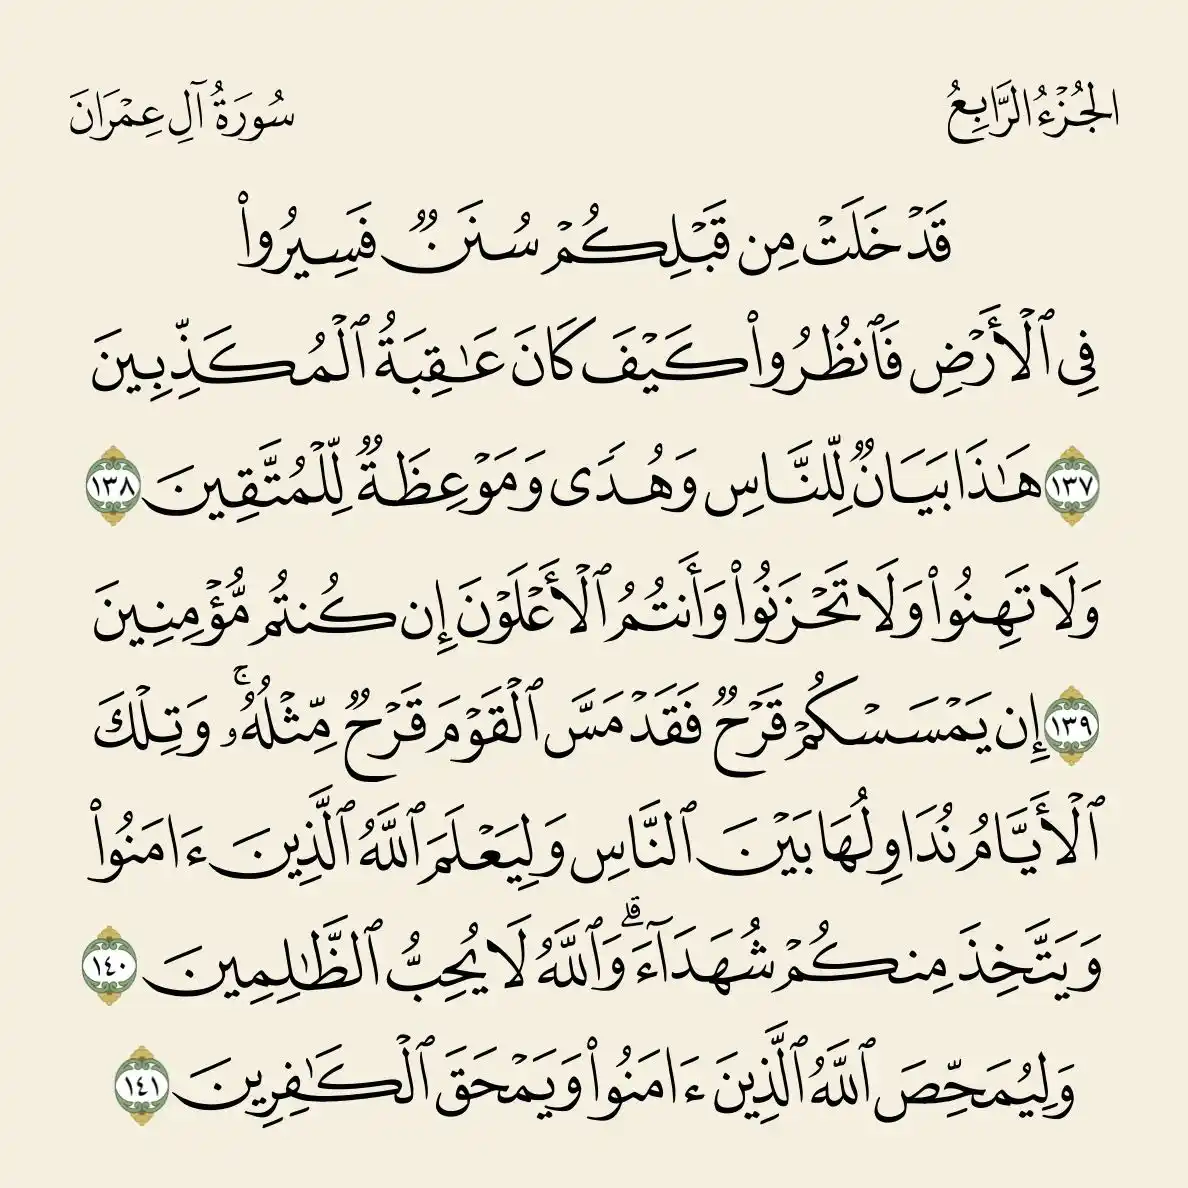 الجُزْءُ الرَّابِعُ
سُورَةُ آلِ عِمْرَانَ
قَدْ خَلَتْ مِن قَبْلِكُمْ سُنَنٌ فَسِيرُوا۟
فِى ٱلْأَرْضِ فَٱنظُرُوا۟ كَيْفَ كَانَ عَـٰقِبَةُ ٱلْمُكَذِّبِينَ
١٣٧ هَـٰذَا بَيَانٌ لِّلنَّاسِ وَهُدًى وَمَوْعِظَةٌ لِّلْمُتَّقِينَ ١٣٨
وَلَا تَهِنُوا۟ وَلَا تَحْزَنُوا۟ وَأَنتُمُ ٱلْأَعْلَوْنَ إِن كُنتُم مُّؤْمِنِينَ
١٣٩ إِن يَمْسَسْكُمْ قَرْحٌ فَقَدْ مَسَّ ٱلْقَوْمَ قَرْحٌ مِّثْلُهُۥ ۚ وَتِلْكَ
ٱلْأَيَّامُ نُدَاوِلُهَا بَيْنَ ٱلنَّاسِ وَلِيَعْلَمَ ٱللَّهُ ٱلَّذِينَ ءَامَنُوا۟
وَيَتَّخِذَ مِنكُمْ شُهَدَآءَ ۗ وَٱللَّهُ لَا يُحِبُّ ٱلظَّـٰلِمِينَ ١٤٠
وَلِيُمَحِّصَ ٱللَّهُ ٱلَّذِينَ ءَامَنُوا۟ وَيَمْحَقَ ٱلْكَـٰفِرِينَ ١٤١